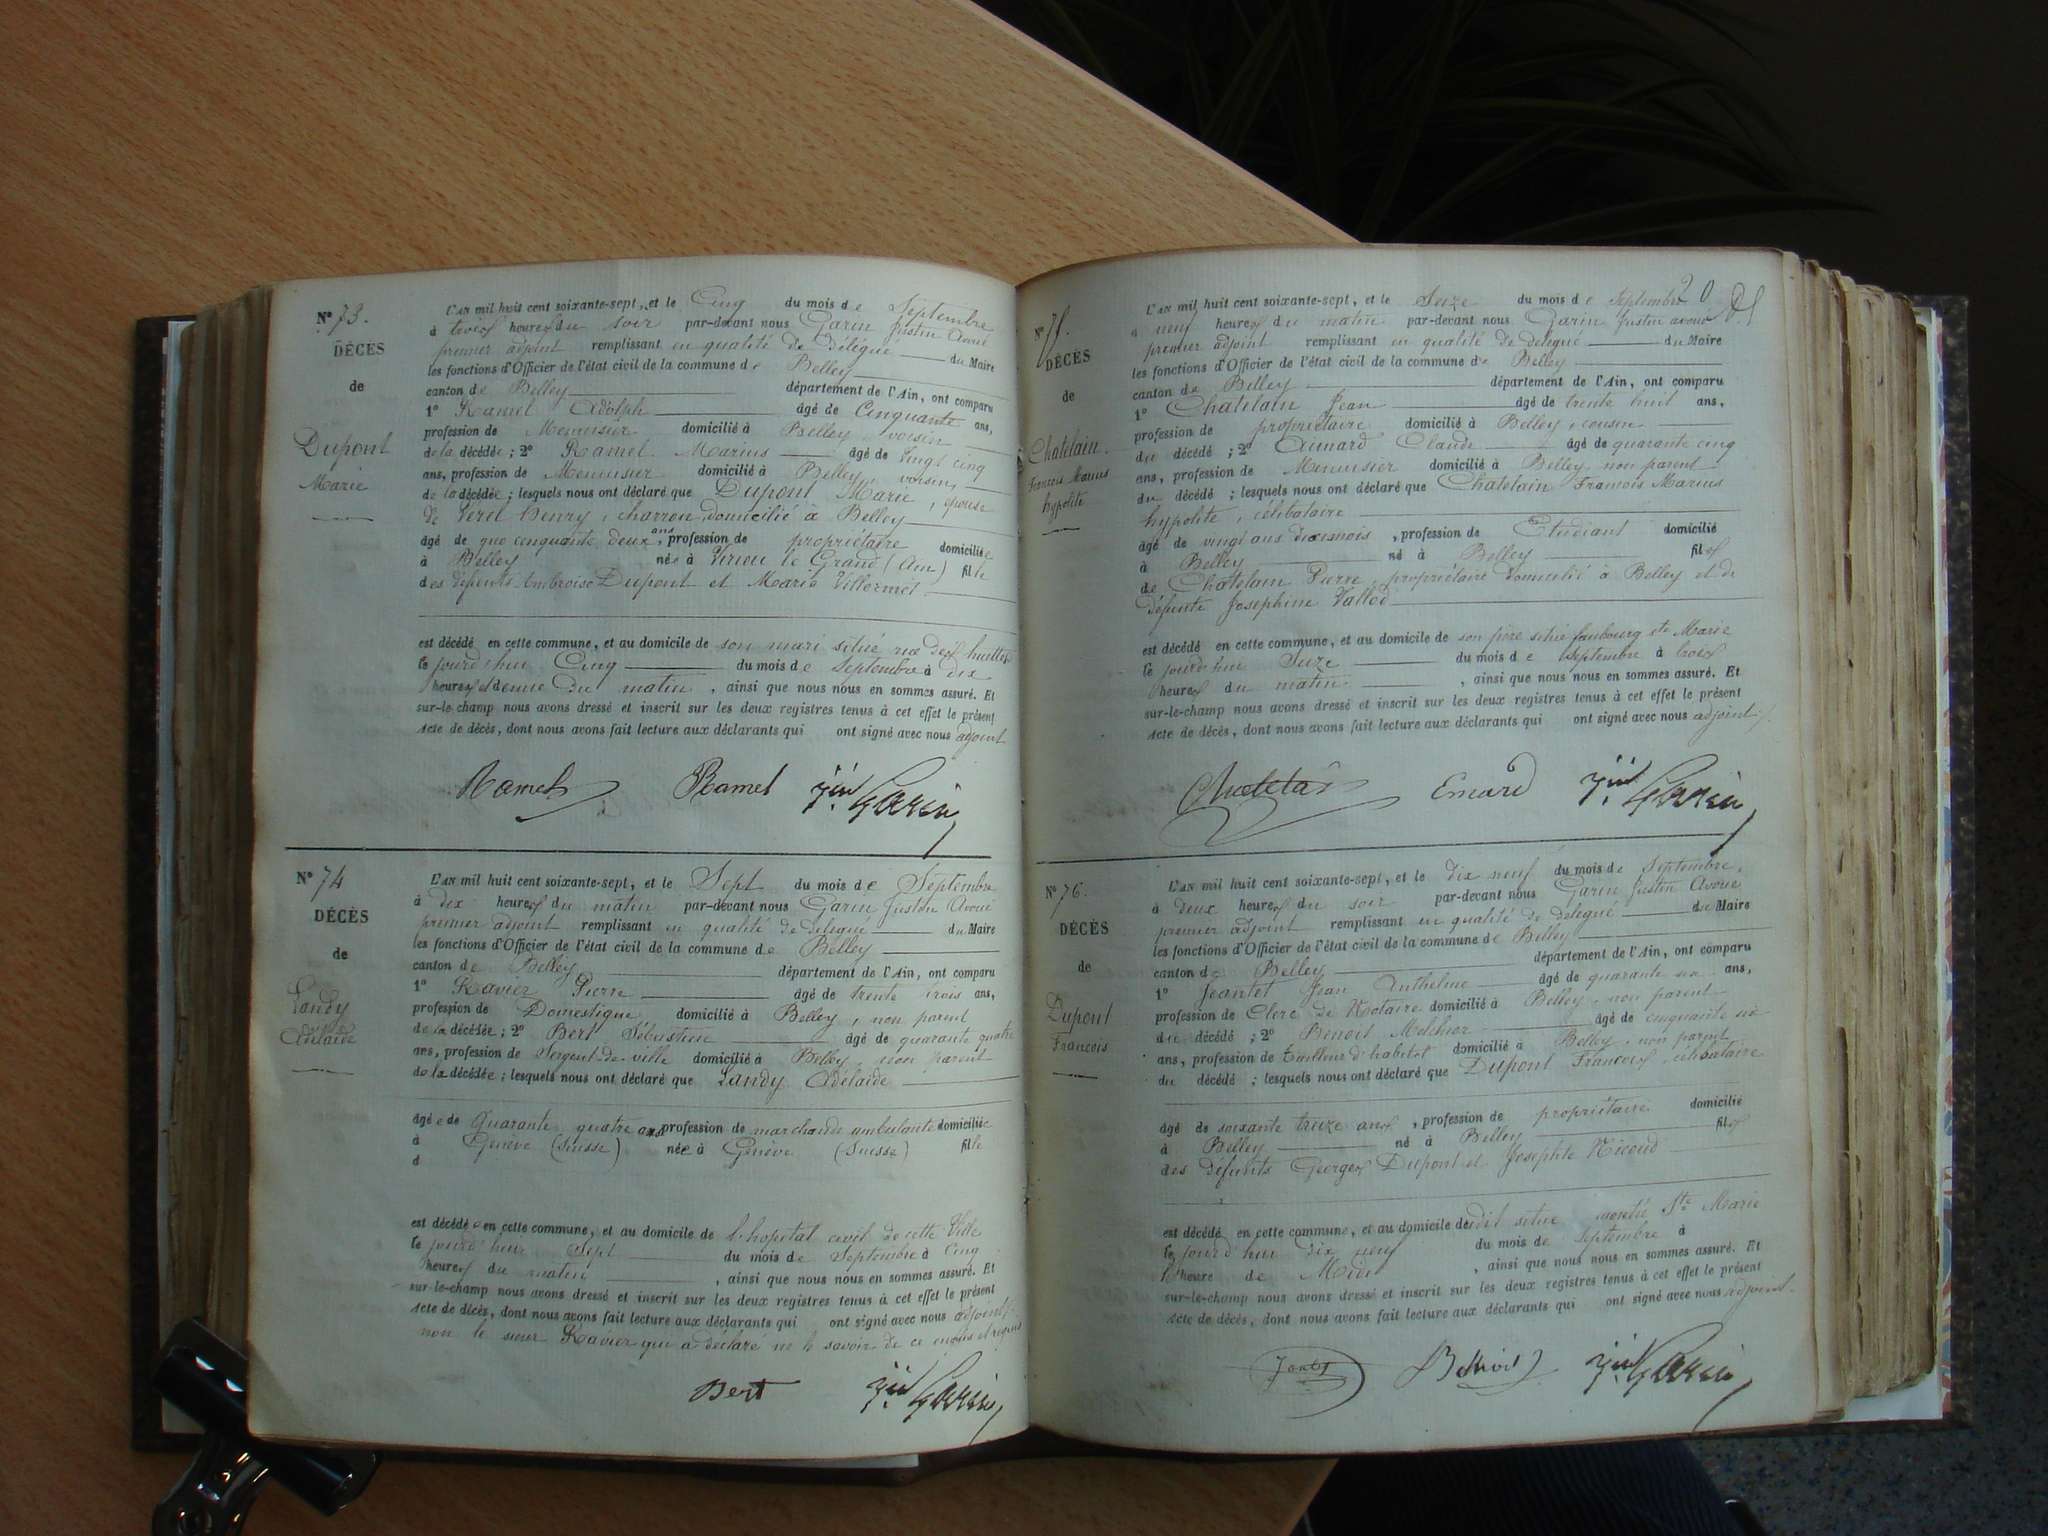 Nº 73.
DÉCÈS
de
Dupont
Marie
L'an mil huit cent soixante-sept, et le Cinq du mois de Septembre
à heures du soir par-devant nous Garin Justin Avoué
premier adjoint remplissant en qualité de délégué du Maire
les fonctions d'Officier de l'état civil de la commune de Belley
canton de Belley département de l'Ain, ont comparu
1º Ramel Adolph âgé de Cinquante ans,
profession de Menuisier domicilié à Belley, voisin
de la décédée ; 2º Ramel Marius âgé de vingt cinq
ans, profession de Menuisier domicilié à Belley, voisin,
de la décédée ; lesquels nous ont déclaré que Dupont Marie, épouse
de henry, charron domicilié à Belley
âgé de que cinquante deux ans, profession de propriétaire domiciliée
à Belley née à Virieu le Grand (Ain) fille
des défunts Ambroise Dupont et Marie Villermet
est décédé en cette commune, et au domicile de son mari situé rue des huttes
le jourd'hui Cinq du mois de Septembre à dix
heures et demie du matin, ainsi que nous nous en sommes assuré. Et
sur-le-champ nous avons dressé et inscrit sur les deux registres tenus à cet effet le présent
acte de décès, dont nous avons fait lecture aux déclarants qui ont signé avec nous adjoint
Ramel Ramel Jin Garin
Nº 74
DÉCÈS
de
Landy
Adelaide
L'an mil huit cent soixante-sept, et le Sept du mois de Septembre
à dix heures du matin par-devant nous Garin Justin Avoué
premier adjoint remplissant en qualité de délégué du Maire
les fonctions d'Officier de l'état civil de la commune de Belley
canton de Belley département de l'Ain, ont comparu
1º Ravier Pierre âgé de trente trois ans,
profession de Domestique domicilié à Belley, non parent
de la décédée ; 2º Bert Sébastien âgé de quarante quatre
ans, profession de Sergent-de-ville domicilié à Belley, non parent
de la décédée ; lesquels nous ont déclaré que Landy Adélaide
âgée de Quarante quatre ans profession de marchande ambulante domiciliée
à Genève (Suisse) née à Genève (Suisse) fille
d
est décédée en cette commune, et au domicile de l'hopital civil de cette Ville
le jourd'hui Sept du mois de Septembre à Cinq
heures du matin, ainsi que nous nous en sommes assuré. Et
sur-le-champ nous avons dressé et inscrit sur les deux registres tenus à cet effet le présent
acte de décès, dont nous avons fait lecture aux déclarants qui ont signé avec nous adjoint
non le sieur Ravier qui a déclaré ne le savoir de ce enquis et requis
Bert Jin Garin
20
Nº 75.
DÉCÈS
de
Chatelain
François Marius
hypolite
L'an mil huit cent soixante-sept, et le Seize du mois de Septembre
à neuf heures du matin par-devant nous Garin Justin avoué
premier adjoint remplissant en qualité de délégué du Maire
les fonctions d'Officier de l'état civil de la commune de Belley
canton de Belley département de l'Ain, ont comparu
1º Chatelain Jean âgé de trente huit ans,
profession de propriétaire domicilié à Belley, cousin
du décédé ; 2º Aimard Claude âgé de quarante cinq
ans, profession de Menuisier domicilié à Belley, non parent
du décédé ; lesquels nous ont déclaré que Chatelain François Marius
hypolite, célibataire
âgé de vingt ans dix mois, profession de Etudiant domicilié
à Belley né à Belley fils
de Chatelain Pierre, propriétaire domicilié à Belley et de
défunte Josephine Vallod
est décédé en cette commune, et au domicile de son père situé faubourg ste Marie
le jourd'hui Seize du mois de Septembre à trois
heures du matin, ainsi que nous nous en sommes assuré. Et
sur-le-champ nous avons dressé et inscrit sur les deux registres tenus à cet effet le présent
acte de décès, dont nous avons fait lecture aux déclarants qui ont signé avec nous adjoint
Chatelain Emard Jin Garin
Nº 76.
DÉCÈS
de
Dupont
Francois
L'an mil huit cent soixante-sept, et le dix neuf du mois de Septembre,
à deux heures du soir par-devant nous Garin Justin Avoué
premier adjoint remplissant en qualité de délégué du Maire
les fonctions d'Officier de l'état civil de la commune de Belley
canton de Belley département de l'Ain, ont comparu
1º Jeantet Jean Anthelme âgé de quarante ans,
profession de Clerc de Notaire domicilié à Belley, non parent
du décédé ; 2º Benoit Melchior âgé de cinquante
ans, profession de tailleur d'habits domicilié à Belley, non parent
du décédé ; lesquels nous ont déclaré que Dupont François, célibataire
âgé de soixante treize ans, profession de propriétaire domicilié
à Belley né à Belley fils
des défunts Georges Dupont et Josephte Nicoud
est décédé en cette commune, et au domicile dudit situé montée Ste Marie
le jourd'hui dix neuf du mois de Septembre à
l'heure de Midi, ainsi que nous nous en sommes assuré. Et
sur-le-champ nous avons dressé et inscrit sur les deux registres tenus à cet effet le présent
acte de décès, dont nous avons fait lecture aux déclarants qui ont signé avec nous adjoint.
Benoit Jin Garin